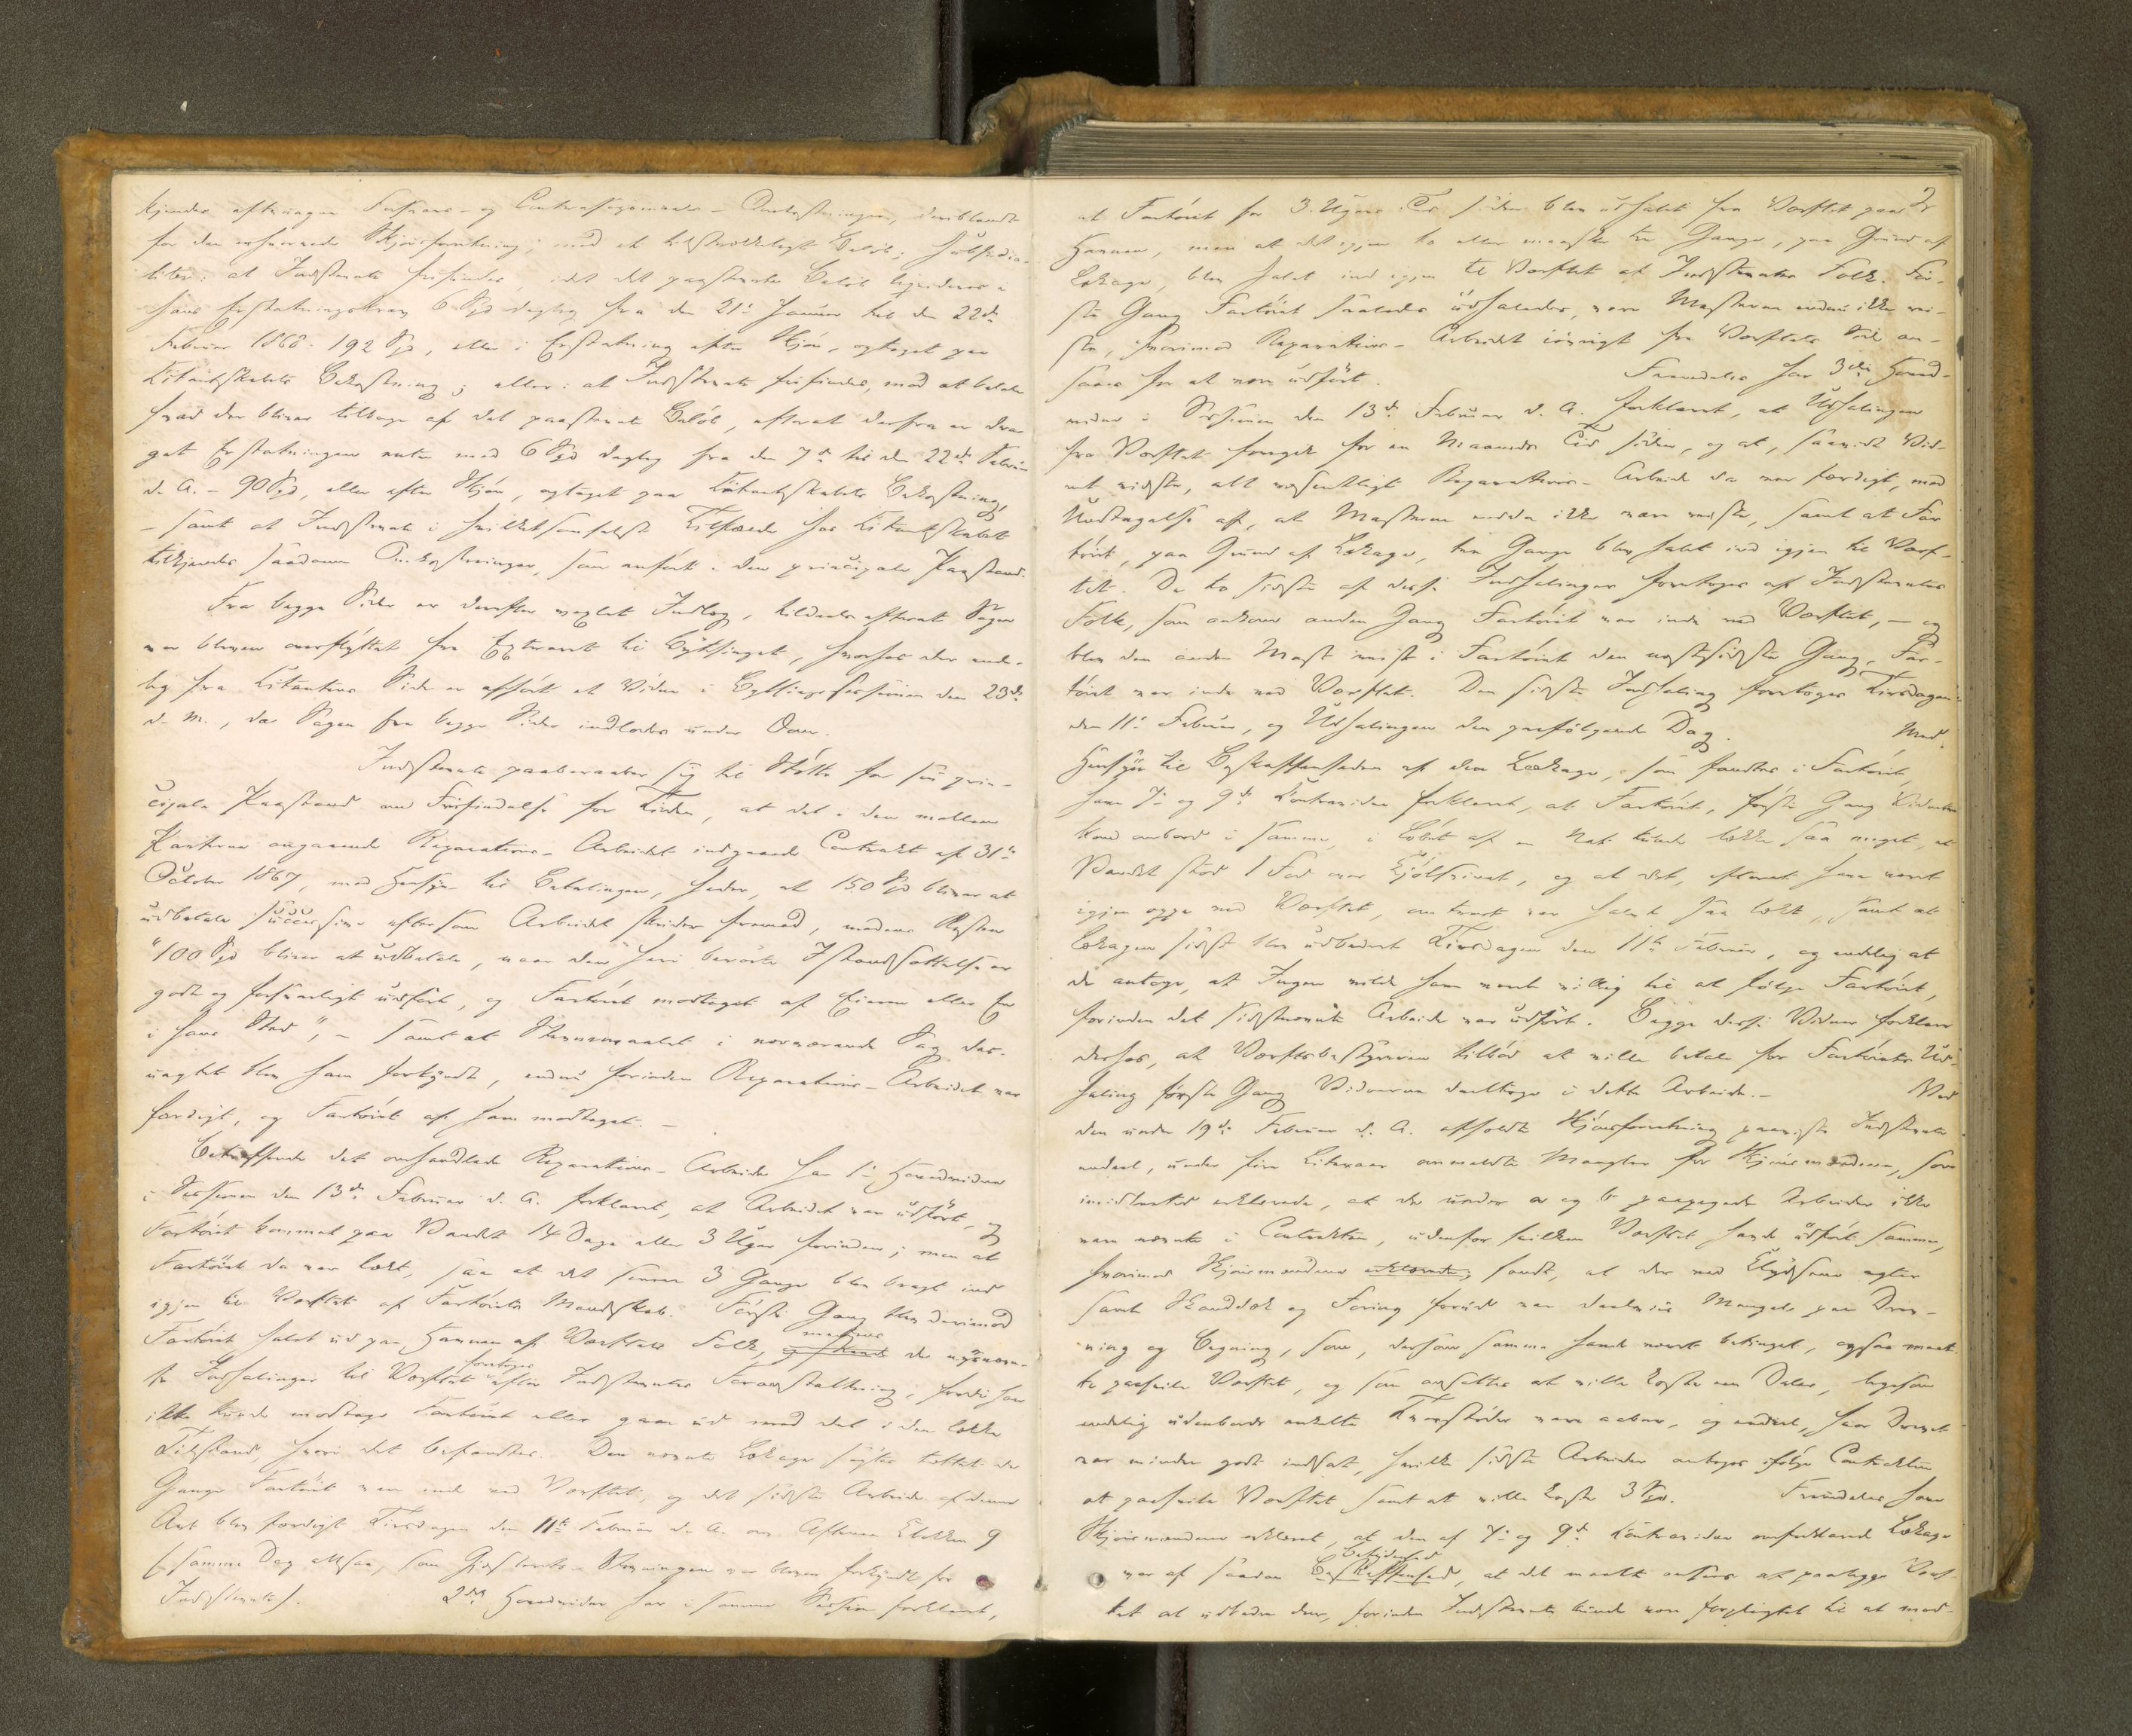 kjendes aftingen Forsvars- og Contrastevnings- Omkostninger, deriblandt
for den Skjönsforretning, med et tilstrækkeligt Belöb; subsidia-
liter: at Indstevnte frifindes, idet det paastevnte Belöb liqvideres i
hans Erstatningskrav 6 Spd daglig fra den 21de Januar til den 22de
Februar 1868: 192 Spd, eller i Erstatning efter Skjön, optaget paa
Citantskabets Bekostning; eller: at Indstevnte frifindes, mod at betale
hvad der bliver tilbage af det paastevnte Belöb, efterat derfra er dra-
get Erstatningen enten med 6 Spd daglig fra den 7de til den 22de Februar
d. A. - 90 Spd, eller efter Skjön, optaget paa Citantskabets Bekostning,
- samt at Indstevnte i hvilketsomhelst Tilfælde hos Citantskabet
tilkjendes saadanne Omkostninger, som anfört i den principale Paastand.
Fra begge Sider er derefter vexlet Indlæg, tildeels efterat Sagen
var bleven overflyttet fra Extraret til Bythinget, hvorhos der ende-
lig fra Citantens Side er afhört et Vidne i Bythingssessionen den 23de
d. M., da Sagen fra begge Sider indlodes under Dom.
Indstevnte paaberaaber sig til Stötte for sin prin-
cipale Paastand om Frifindelse for Tiden, at det i den mellem
Parterne angaaende Reparations-Arbeidet indgaaede Contrakt af 31te
October 1867, med Hensyn til Betalingen, heder, at 150 Spd bliver at
udbetale successive eftersom Arbeidet skrider fremad, medens Resten
"100 Spd bliver at udbetale, naar den heri berörte Istandsættelse er
godt og forsvarligt udfört, og Fartöiet modtaget af Eieren eller En
i hans Sted", - samt at Stevnemaalet i nærværende Sag des-
uagtet blev ham forkyndt, endnu forinden Reparations-Arbeidet var
færdigt, og Fartöiet af ham modtaget. -
Betræffende det omhandlede Reparations-Arbeide har 1ste Hovedvidne
i Sessionen den 13de Februar d. A. forklaret, at Arbeidet var udfört, og
Fartöiet kommet paa Vandet 14 Dage eller 3 Uger forinden; men at
Fartöiet da var læk, saa at det senere 3 Gange blev bragt ind
igjen til Værftet af Fartöiets Mandskab. Förste Gang blev derimod
Fartöiet halet ud paa Havnen af Værftets Folk, medens de nysnævn-
te Indhalinger til Værftet foretoges efter Indstevntes Foranstaltning, fordi han
ikke kunde modtage Fartöiet eller gaae ud med det i den lække
Tilstand, hvori det befandtes. Den nævnte Lækage sögtes tættet de
Gange Fartöiet var inde ved Værftet, og det sidste Arbeide af denne
Art blev færdigt Tirsdagen den 11te Februar d. A. om Aftenen Klokken 9
(samme Dag altsaa, som Gjæstrets-Stevningen var bleven forkyndt for
Indstevnte). 2det Hovedvidne har i samme Session forklaret,
2
at Fartöiet for 3 Ugers Tid siden blev udhalet fra Værftet paa
Havnen, men at det igjen to eller maaske tre Gange, paa Grund af
Lækage, blev halet ind igjen til Værftet af Indstevntes Folk. För-
ste Gang Fartöiet saaledes udhaledes, vare Masterne endnu ikke rei-
ste, hvorimod Reparations-Arbeidet iövrigt fra Værftets Side an-
saaes for at være udfört. Fremdeles har 3die Hoved-
vidne i Sessionen den 13de Februar d. A. forklaret, at Udhalingen
fra Værftet foregik for en Maaneds Tid siden, og at, saavidt Vid-
net vidste, alt væsentligt Reparations-Arbeide da var færdigt, med
Undtagelse af, at Masterne endda ikke vare reiste, samt at Far-
töiet, paa Grund af Lækage, tre Gange blev halet ind igjen til Værf-
tet. De to sidste af disse Indhalinger foretoges af Indstevntes
Folk, som anden Gang Fartöiet var inde ved Værftet, - og
blev den anden Mast reist i Fartöiet den næstsidste Gang, Far-
töiet var inde ved Værftet. Den sidste Indhaling foretoges Tirsdagen
den 11te Februar, og Udhalingen den paafölgende Dag. Med
Hensyn til Beskaffenheden af den Lækage, som fandtes i Fartöiet,
have 7de og 9de Contravidne forklaret, at Fartöiet, förste Gang Vidnerne
kom ombord i samme, i Löbet af en Nat kunde lække saa meget, at
Vandet stod 1 Fod over Kjölsvinet, og at det, efterat have været
igjen oppe ved Værftet, omtrent var halvt saa læk, samt at
Lækagen sidst blev udbedret Tirsdagen den 11te Februar, og endelig at
de antoge, at Ingen vilde have været villig til at fölge Fartöiet,
forinden det sidstnævnte Arbeide var udfört. Begge disse Vidner forklare
derhos, at Værftsbestyreren tilböd at ville betale for Fartöiets Ud-
haling förste Gang Vidnerne deeltoge i dette Arbeide. - Ved
den under 19de Februar d. A. afholdte Skjönsforretning paaviste Indstevnte
endeel, under fire Litraer anmeldte Mangler for Skjönsmændene, som
imidlertid erklærede, at de under a og b paapegede Arbeider ikke
vare nævnte i Contrakten, udenfor hvilken Værftet havde udfört samme,
hvorimod Skjönsmændene erklærede, fandt, at der ved agter
samt Skanddæk og forud var deelviis Mangel paa Driv-
ning og Begning, som, dersom samme havde været betinget, ogsaa maat-
te paahvile Værftet, og som ansattes at ville koste een Daler, ligesom
endelig udenbords enkelte vare aabne, og endeel, hvor Drevet
var mindre godt indsat, hvilke sidste Arbeider antoges ifölge Contrakten
at paahvile Værftet samt at ville koste 3 Spd. Fremdeles have
Skjönsmændene erklæret, at den af 7de og 9de Contravidne omforklarede Lækage
var af saadan Betydenhed Beskaffenhed, at det maatte ansees at paaligge Værf-
tet at udbedre den, forinden Indstevnte kunde være forpligtet til at mod-